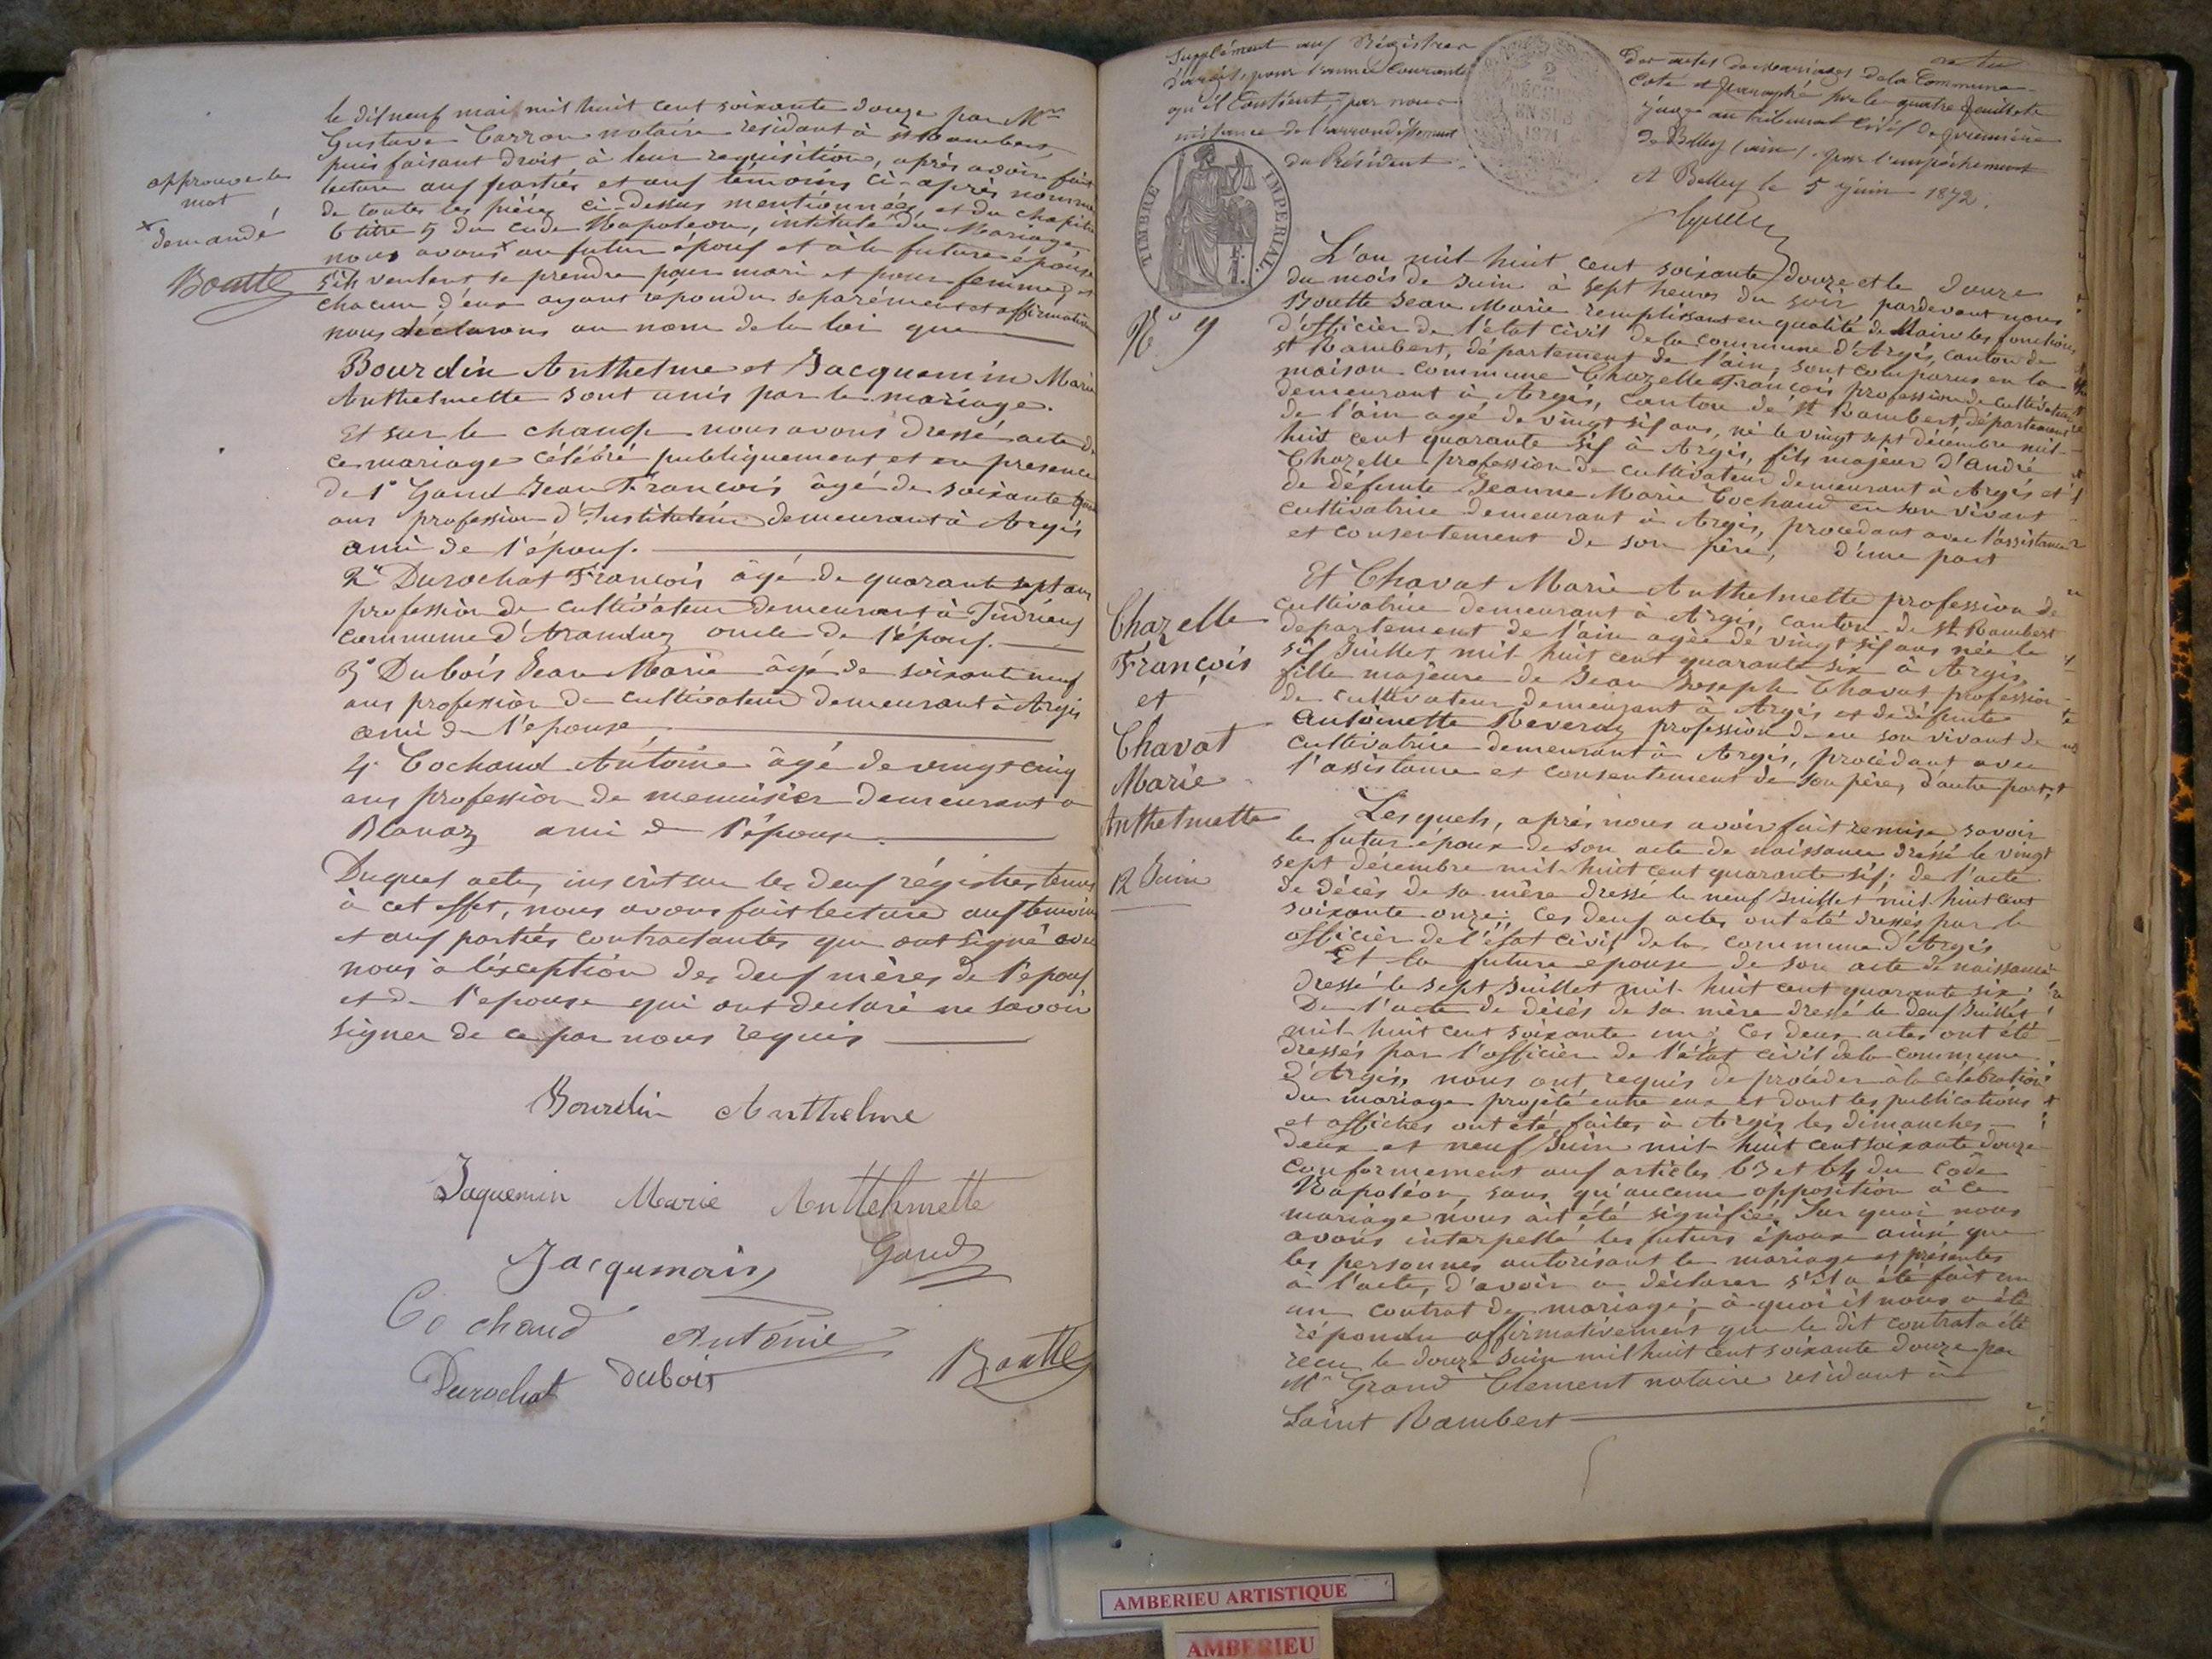 le dix neuf mai mil huit cent soixante douze par Mre
Gustave Carron notaire résidant à St Rambert,
puis faisant droit à leur requisition, après avoir fait
lecture aux parties et aux témoins ci-après nommés
de toutes les pièces ci-dessus mentionnées et du chapitre
6 titre 5 du code Napoléon, intitulé du Mariage
nous avons x au futur époux et à la future épouse
s'ils veulent se prendre pour mari et pour femme, et
chacun d'eux ayant répondu séparément et affirmativem
nous déclarons au nom de la loi que
Bourdin Anthelme et Jacquemin Marie
Anthelmette sont unis par le mariage.
Et sur le champ nous avons dressé acte de
ce mariage célébré publiquement et en presence
de 1° Gand Jean François âgé de soixante
ans profession d'Instituteur demeurant à Argis
ami de l'époux.
2° Durochat François âgé de quarante sept ans
profession de cultivateur demeurant à Indrieux
commune d'Arandas oncle de l'époux.
3° Dubois Jean Marie âgé de soixante neuf
ans profession de cultivateur demeurant à Argis
ami de l'épouse
4° Cochand Antoine âgé de vingt cinq
ans profession de menuisier demeurant a
Blanaz ami de l'épouse
Duquel acte, inscrit sur les deux régistres tenus
à cet effet, nous avons fait lecture aux temoins
et aux parties contractantes qui ont signé avec
nous à l'éxception des deux mères de l'époux
et de l'épouse qui ont declaré ne savoir
signer de ce par nous requis
approuve le
mot
x demandé
Boutte
Bourdin Anthelme
Jaquemin Marie Anttehmette
Jacquemain Gand
Cochand Antonie
Durochat Dubois Boutte
Supplément aux Régistres des actes de mariages de la Commune
d'Argis, pour l'année courante Coté et paraphé sur les quatre feuillets
qu'il contient, par nous juge au tribunal civil de première
instance de l'arrondissement de Belley (ain). pour l'empéchement
du Président. A Belley le 5 juin 1872.
2
DÉCIMES
EN SUS
1871
TIMBRE IMPERIAL.
N° 9
L'an mil huit cent soixante douze et le douze
du mois de Juin à sept heures du soir pardevant nous
Boutte Jean Marie remplissant en qualité de Maire les fonctions
d'officier de l'état civil de la commune d'Argis, canton de
St Rambert, département de l'ain, sont comparus en la
maison commune Chazelle François profession de cultivateur
demeurant à Argis, canton de St Rambert, département
de l'ain agé de vingt six ans, né le vingt sept décembre mil
huit cent quarante six à Argis, fils majeur d'André
Chazelle profession de cultivateur demeurant à Argis et
de défunte Jeanne Marie Cochand en son vivant
cultivatrice demeurant à Argis, procédant avec l'assistance
et consentement de son père, d'une part
Et Chavat Marie Anthelmette profession de
cultivatrice demeurant à Argis, canton de St Rambert
departement de l'ain agée de vingt six ans née le
six Juillet mil huit cent quarante six à Argis,
fille majeure de Jean Joseph Chavat profession
de cultivateur demeurant à Argis et de défunte
Antoinette Reveraz profession de en son vivant de
cultivatrice demeurant à Argis, procédant avec
l'assistance et consentement de son père, d'autre part,
Chazelle
François
et
Chavat
Marie
Anthelmette
12 Juin
Lesquels, après nous avoir fait remise savoir
le futur époux de son acte de naissance dressé le vingt
sept décembre mil huit cent quarante six; de l'acte
de décès de sa mère dressé le neuf Juillet mil huit cent
soixante onze; ces deux actes ont été dressés par le
officier de l'état civil de la commune d'Argis
Et la future epouse de son acte de naissance
dressé le sept Juillet mil huit cent quarante six
De l'acte de décès de sa mère dressé le deux Juillet
mil huit cent soixante un; Ces deux actes ont été
dressés par l'officier de l'état civil de la commune
d'Argis, nous ont requis de procéder à la célébration
du mariage projeté entre eux et dont les publications
et affiches ont été faites à Argis les dimanches
deux et neuf Juin mil huit cent soixante douze
conformement aux articles 63 et 64 du code
Napoléon, sans qu'aucune opposition à ce
mariage nous ait été signifié. Sur quoi nous
avons interpellé les futurs époux ainsi que
les personnes autorisant le mariage et présentes
à l'acte, d'avoir a déclarer s'il a été fait un
un contrat de mariage; à quoi il nous a été
répondu affirmativement que le dit contrat a été
recu le douze Juin mil huit cent soixante douze par
Me Grand Clement notaire résidant à
Saint Rambert
AMBERIEU ARTISTIQUE
AMBERIEU